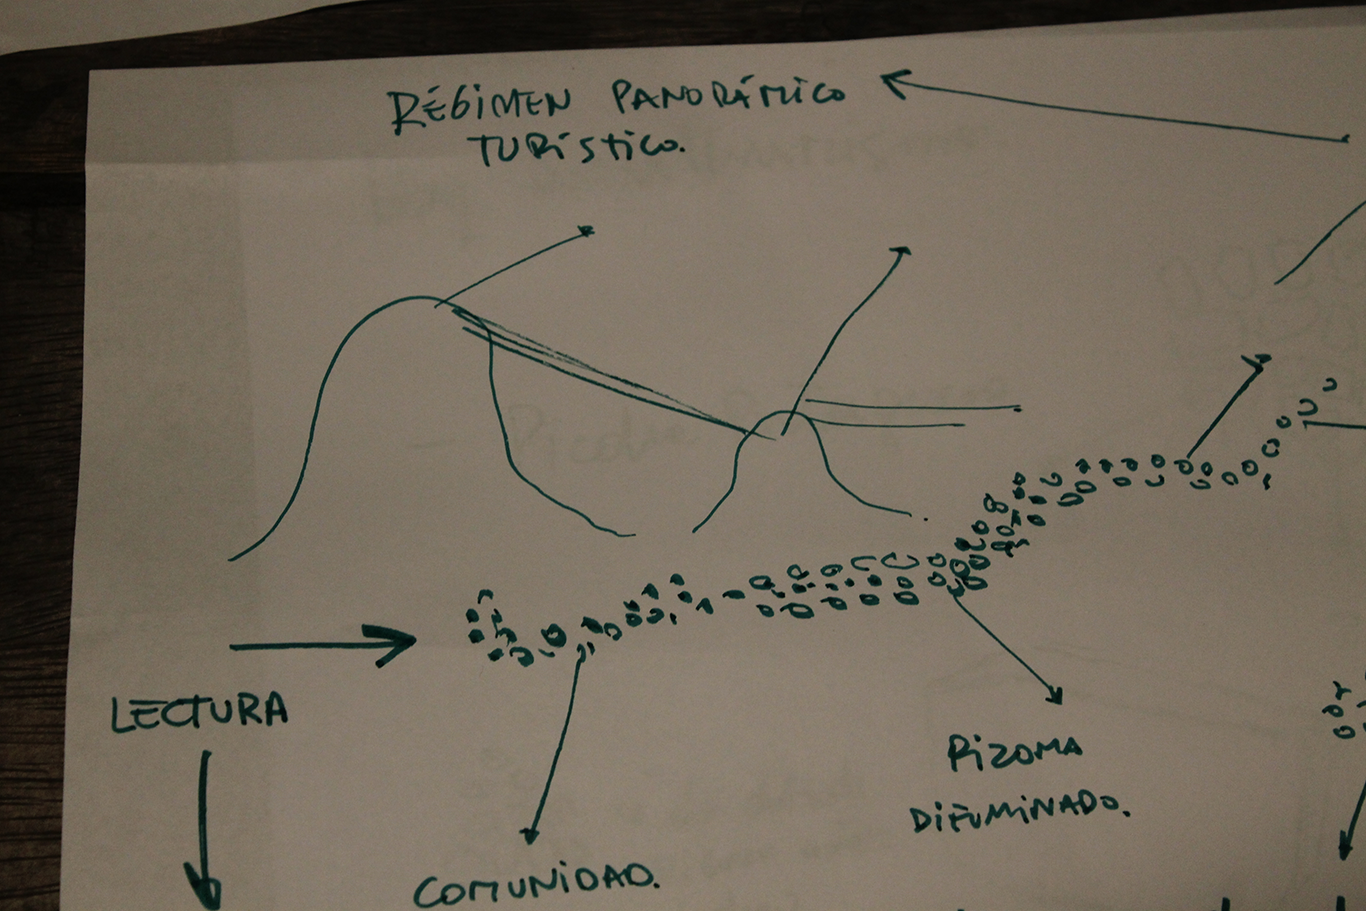 RÉGIMEN PANORÁMICO
TURÍSTICO.
LECTURA
RIZOMA
DIFUMINADO.
COMUNIDAD.